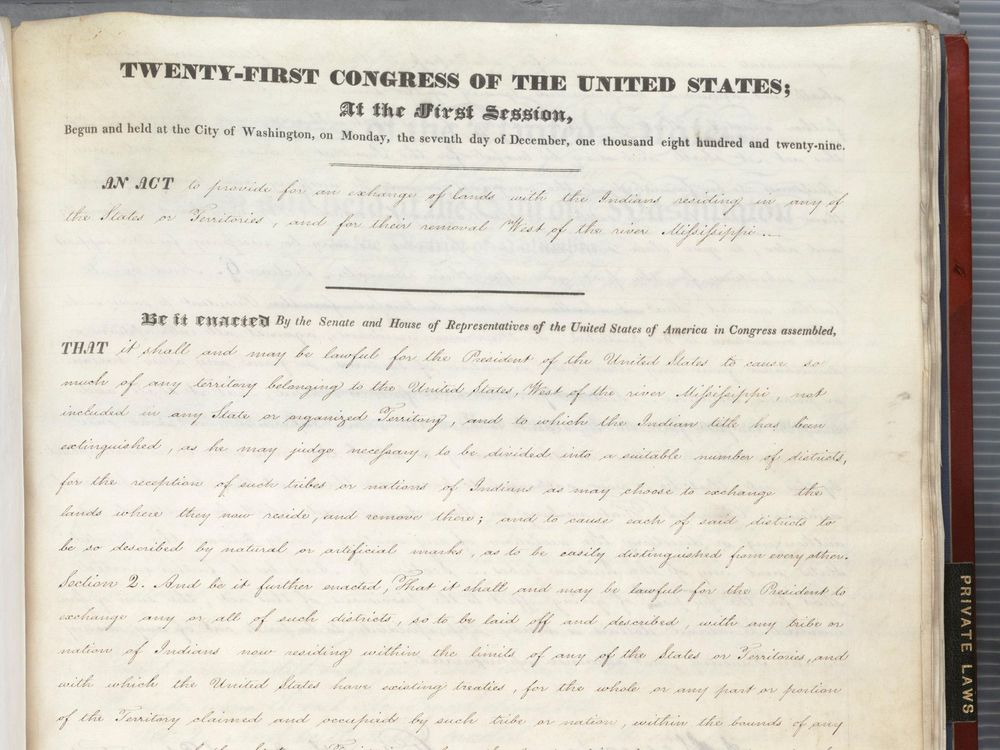 TWENTY-FIRST CONGRESS OF THE UNITED STATES;
At the First Session,
Begun and held at the City of Washington, on Monday, the seventh day of December, one thousand eight hundred and twenty-nine.
AN ACT to provide for an exchange of lands with the Indians residing in any of
the States or Territories, and for their removal West of the river Mississippi.
Be it enacted By the Senate and House of Representatives of the United States of America in Congress assembled,
THAT it shall and may be lawful for the President of the United States to cause so
much of any territory belonging to the United States, West of the river Mississippi, not
included in any State or organized Territory, and to which the Indian title has been
extinguished, as he may judge necessary, to be divided into a suitable number of districts,
for the reception of such tribes or nations of Indians as may choose to exchange the
lands where they now reside, and remove there; and to cause each of said districts to
be so described by natural or artificial marks, as to be easily distinguished from every other.
Section 2. And be it further enacted, That it shall and may be lawful for the President to
exchange any or all of such districts, so to be laid off and described, with any tribe or
nation of Indians now residing within the limits of any of the States or Territories, and
with which the United States have existing treaties, for the whole or any part or portion
of the Territory claimed and occupied by such tribe or nation, within the bounds of any
PRIVATE LAWS